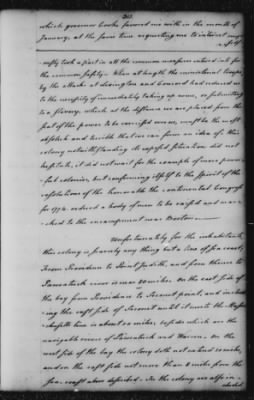 which governor Cooke favored me with in the month of
January, at the same time requesting me to interest my
self
mostly took a part in all the common measures interested for
the common safety. When at length the ministerial troops
by the attack at Lexington and Concord had reduced us
to the necessity of immediately taking up arms, or submitting
to a slavery, which at the distance we are placed from the
seat of the power to be exercised over us, must be the most
absolute and terrible that we can form an idea of, this
colony notwithstanding its exposed situation did not
hesitate, it did not wait for the example of more power
ful colonies, but conforming itself to the spirit of the
resolutions of the honorable the continental Congress
for 1774 ordered a body of men to be raised and mar
ched to the encampment near Boston
Unfortunately for the inhabitants
this colony is scarcely any thing but a line of sea coast,
From Providence to Point Judith, and from thence to
Pawcatuck river is near 80 miles. On the east side of
the bay from Providence to Seconet point, and includ
ing the east side of Seconet until it meets the Massa
chusetts line is about 50 miles, beside which are the
navigable rivers of Pawcatuck and Warren. On the
west side of the bay the colony doth not extend 20 miles,
and on the east side not more than 8 miles from the
sea coast above described. In the colony are also in
cluded